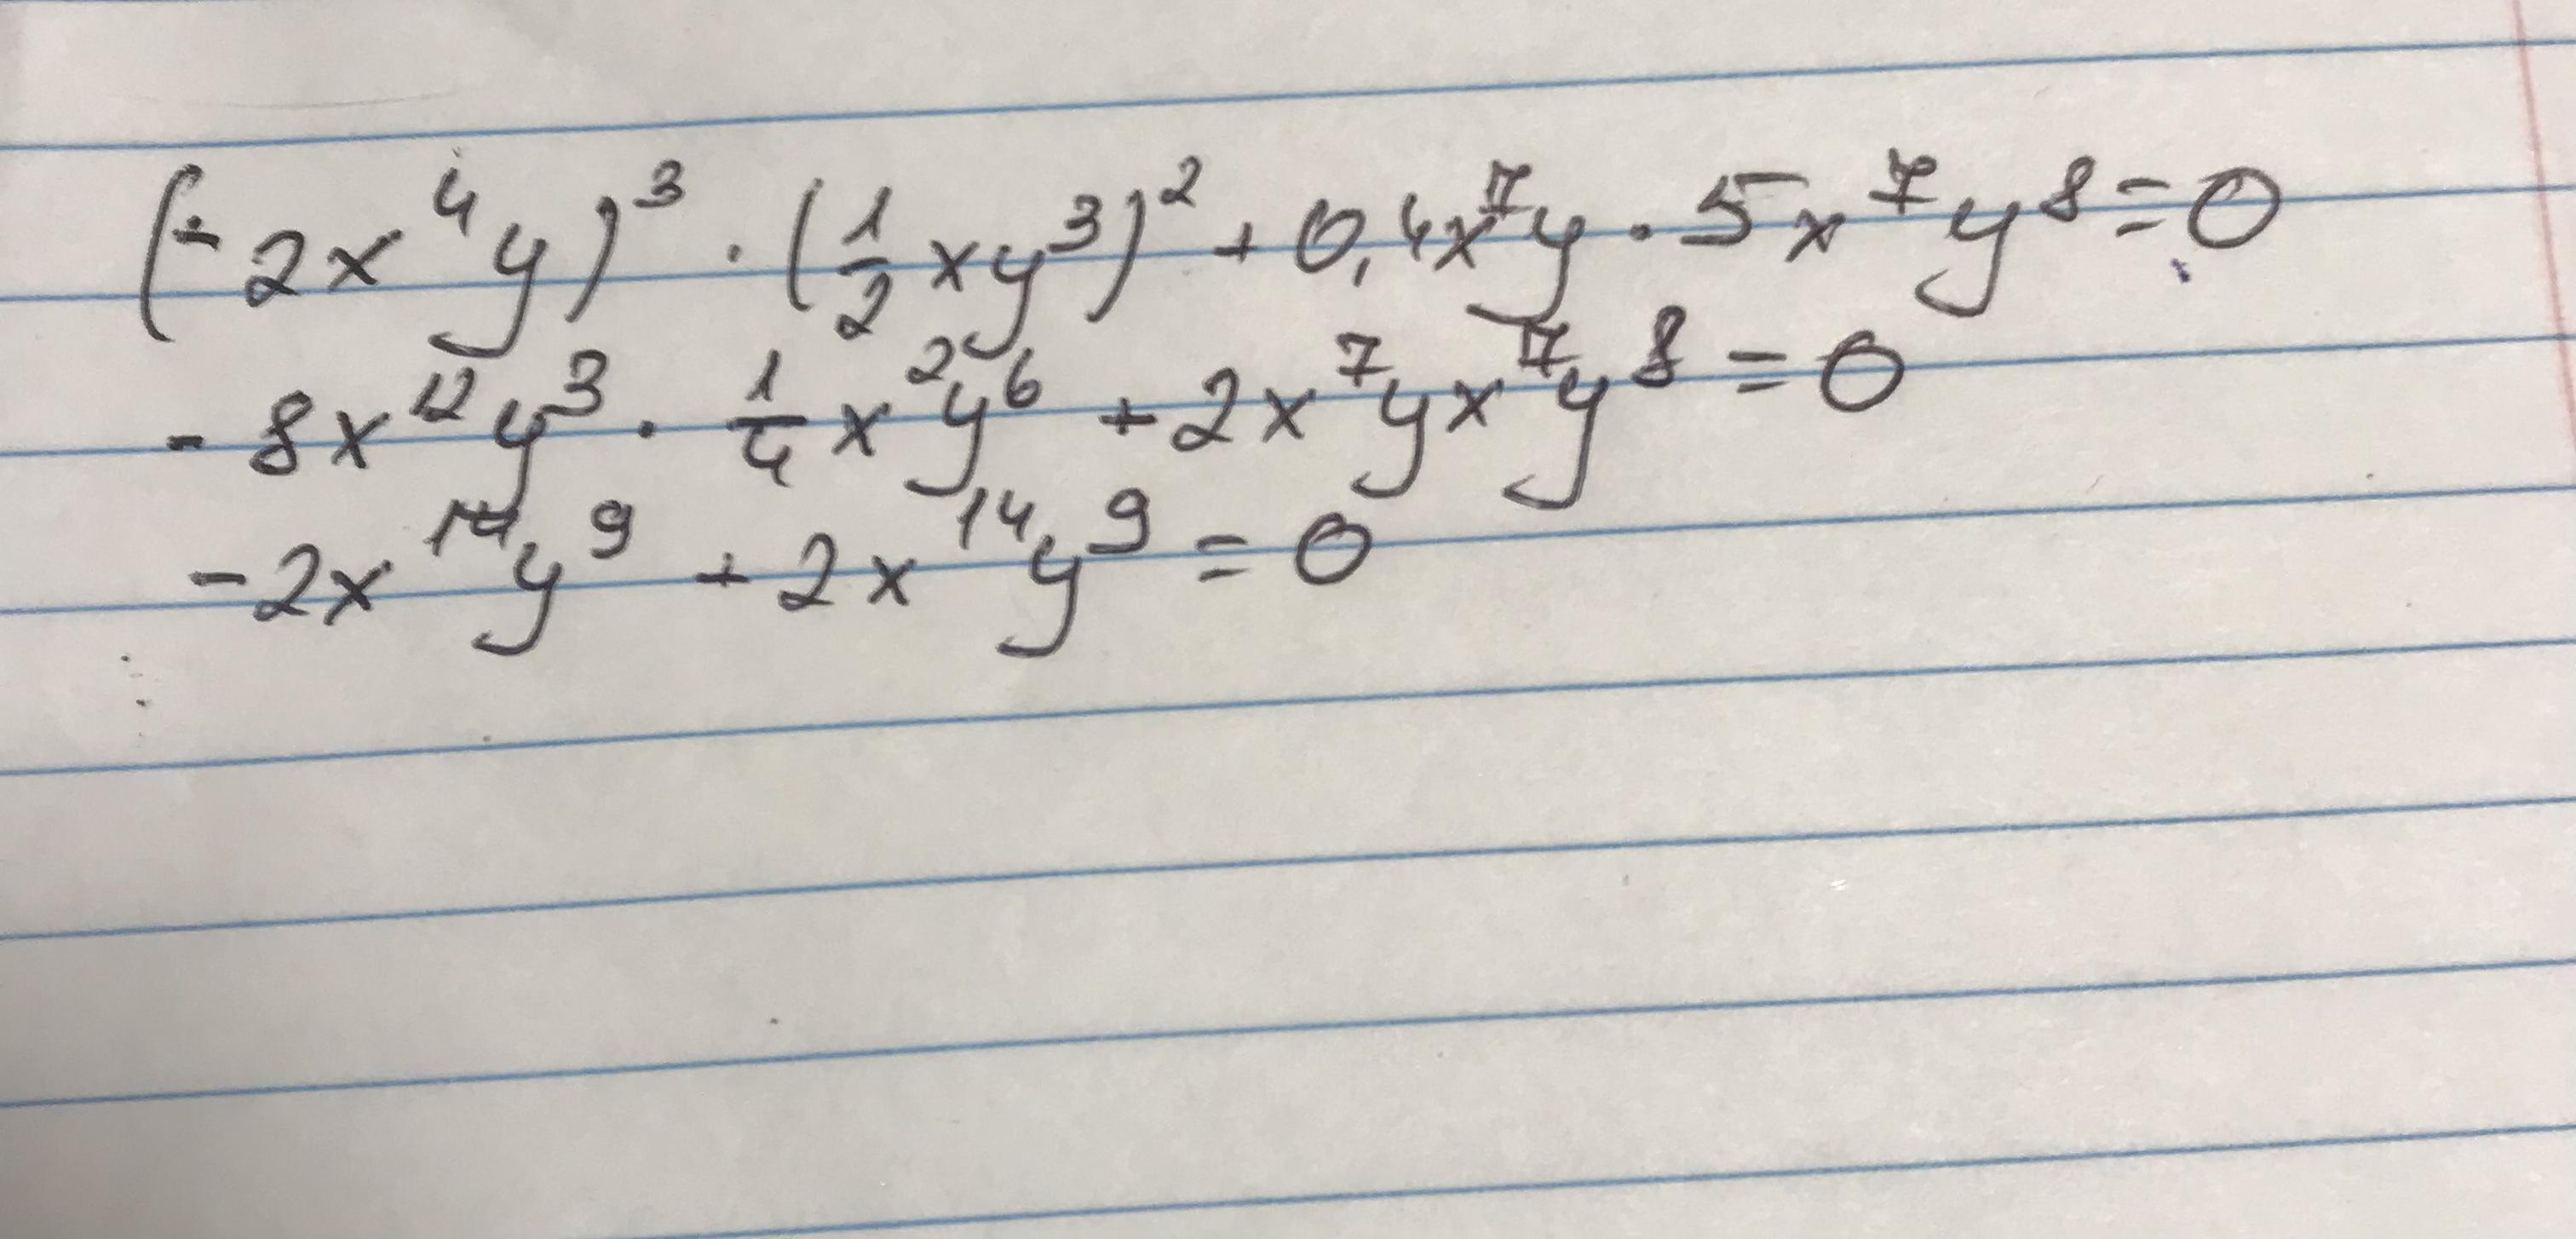 (-2x⁴y)³ · (1/2 xy³)² + 0,4x⁷y · 5x⁷y⁸ = 0
- 8x¹²y³ · 1/4 x²y⁶ + 2x⁷yx⁷y⁸ = 0
- 2x¹⁴y⁹ + 2x¹⁴y⁹ = 0